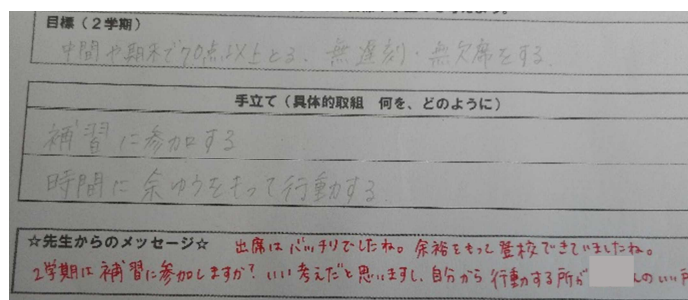 目標（２学期）
中間や期末で70点以上とる、無遅刻・無欠席をする
手立て（具体的取組　何を、どのように）
補習に参加する
時間に余ゆうをもって行動する
☆先生からのメッセージ☆　出席はバッチリでしたね。余裕をもって登校できていましたね。
2学期は補習に参加しますか？いい考えだと思いますし、自分から行動する所が んのいい